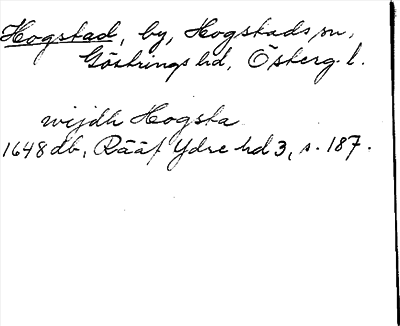 Hogstad, by, Hogstads sn,
Göstrings hd, Österg. l.
wijdh Hogsta
1648 db, Rääf Ydre hd 3, s. 187.